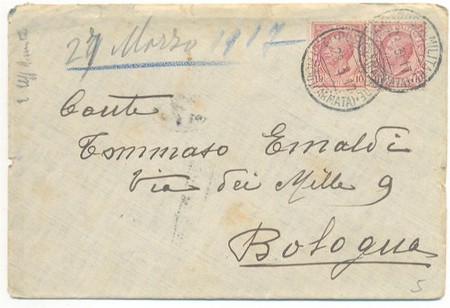 27 Marzo 1917
Conte
Tommaso Ermaldi
Via dei Mille 9
Bologna
5